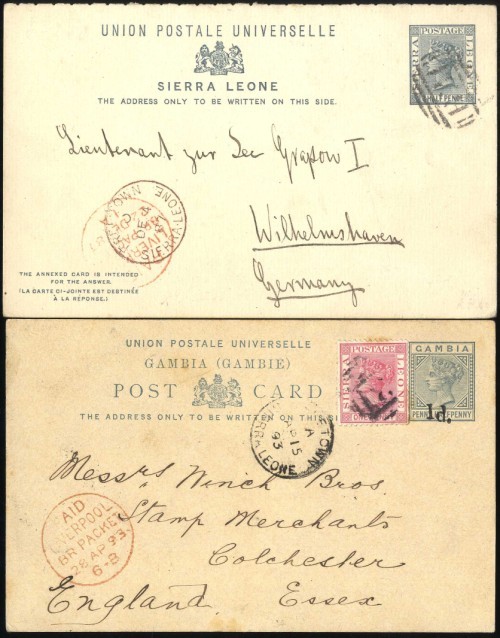 UNION POSTALE UNIVERSELLE
SIERRA LEONE
THE ADDRESS ONLY TO BE WRITTEN ON THIS SIDE.
POSTAGE
SIERRA LEONE
HALF PENNY
Lieutenant zur See Grapow I
Wilhelmshaven
Germany
THE ANNEXED CARD IS INTENDED
FOR THE ANSWER.
(LA CARTE CI-JOINTE EST DESTINÉE
À LA RÉPONSE.)
UNION POSTALE UNIVERSELLE
GAMBIA (GAMBIE)
POST CARD
THE ADDRESS ONLY TO BE WRITTEN ON THIS SI
POSTAGE
SIERRA LEONE
ONE
GAMBIA
1d.
PENNY HALFPENNY
FREETOWN
A
AP 15
93
SIERRA LEONE
Messrs Winch Bros.
Stamp Merchants
Colchester
England Essex
PAID
LIVERPOOL
BR PACKET
28 AP 93
6-B